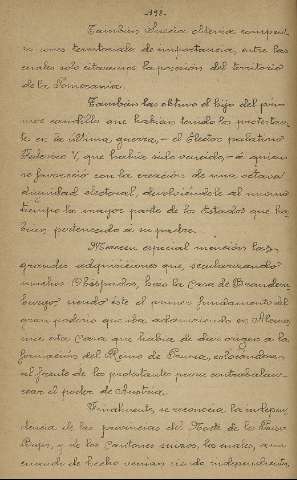 -198-
También Suecia obtuvo compensa-
nes territoriales de importancia, entre las
cuales solo citaremos la posesión del territorio
de la Pomerania.
También las obtuvo el hijo del pri-
mer caudillo que habían tenido los protestan-
tes en la última guerra, – el Elector palatino
Federico V, que había sido vencido, – á quien
se favoreció con la creación de una octava
dignidad electoral, devolviéndole al mismo
tiempo la mayor parte de los Estados que ha-
bían pertenecido á su padre.
Merecen especial mención las
grandes adquisiciones que, secularizando
muchos Obispados, hizo la Casa de Branden-
burgo, siendo éste el primer fundamento del
gran poderío que iba adquiriendo en Alema-
nia esta Casa que había de dar origen a la
formación del Reino de Prusia, colocándose
al frente de los protestantes para contrabalan-
cear el poder de Austria.
Finalmente, se reconocía la indepen-
dencia de las provincias del Norte de los Países
Bajos, y de los Cantones suizos, los cuales, aun
cuando de hecho venían siendo independientes,